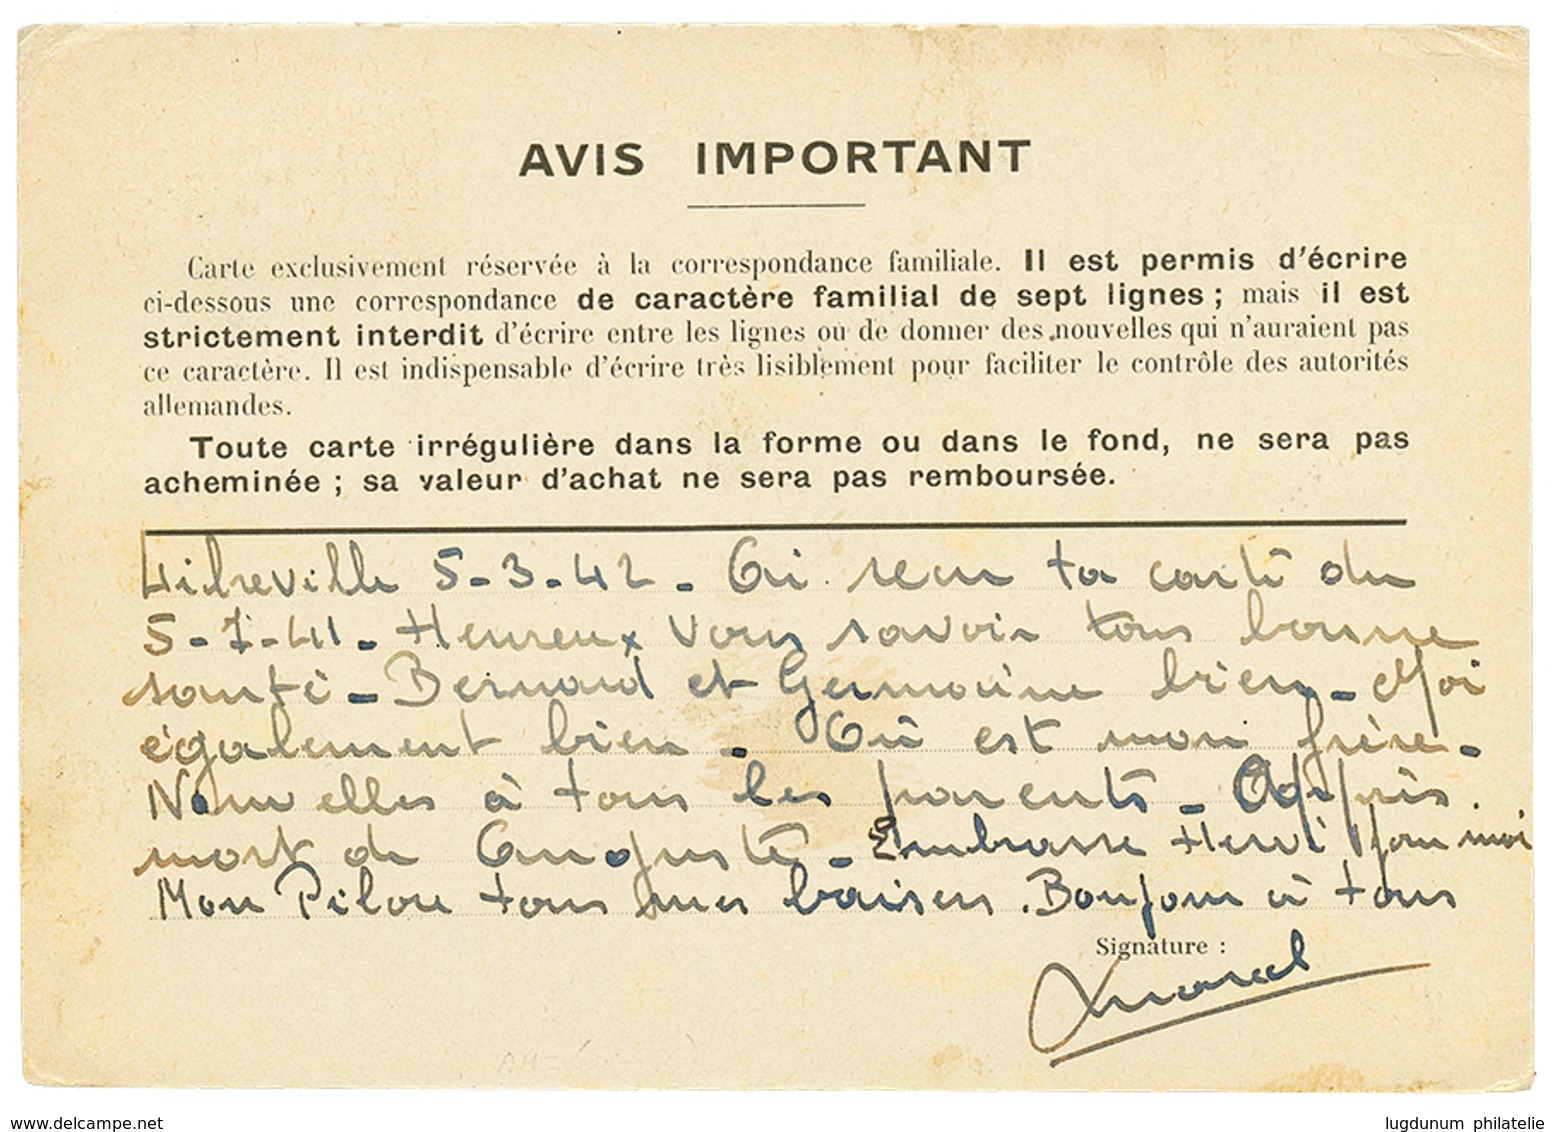 AVIS IMPORTANT
Carte exclusivement réservée à la correspondance familiale. Il est permis d'écrire
ci-dessous une correspondance de caractère familial de sept lignes ; mais il est
strictement interdit d'écrire entre les lignes ou de donner des nouvelles qui n'auraient pas
ce caractère. Il est indispensable d'écrire très lisiblement pour faciliter le contrôle des autorités
allemandes.
Toute carte irrégulière dans la forme ou dans le fond, ne sera pas
acheminée ; sa valeur d'achat ne sera pas remboursée.
Libreville 5-3-42 - Ai recu ta carte du
5-7-41 - Heureux vous savoir tous bonne
santé - Bernard et Germaine bien - Moi
également bien - Où est mon frère -
Nouvelles à tous les parents - Appris
mort de Auguste - Embrasse Henri pour moi
Mon Pilou tous mes baisers. Bonjour à tous
Signature :
Marcel
www.delcampe.net
lugdunum philatelie